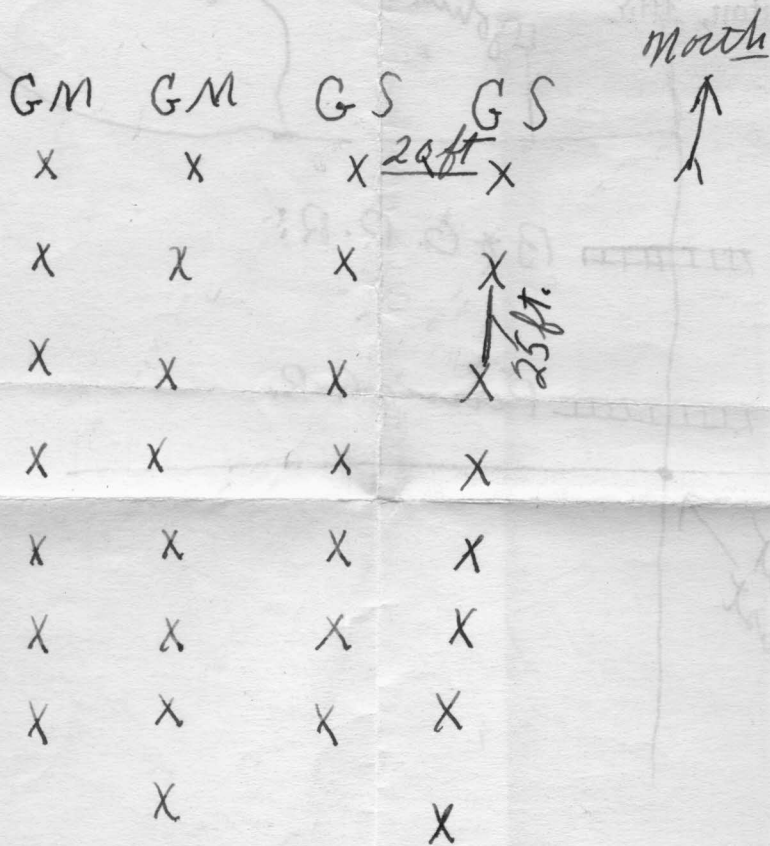 North
GM GM GS GS
X X X 20ft X
X X X X
25ft.
X X X X
X X X X
X X X X
X X X X
X X X X
X X